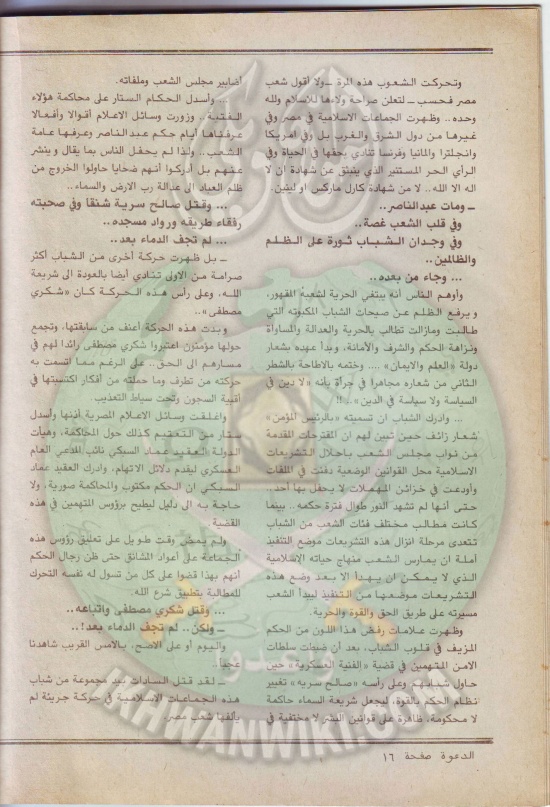 وتحركت الشعوب هذه المرة ــ ولا أقول شعب
مصر فحسب ــ لتعلن صراحة ولاءها للاسلام ولله
وحده.. وظهرت الجماعات الاسلامية في مصر وفي
غيرها من دول الشرق والغرب بل وفي امريكا
وانجلترا والمانيا وفرنسا تنادي بحقها في الحياة وفي
الرأي الحر المستنير الذي ينبثق عن شهادة ان لا
اله الا الله.. لا من شهادة كارل ماركس او لينين.
ــ ومات عبدالناصر..
وفي قلب الشعب غصة..
وفي وجدان الشباب ثورة على الظلم
والظالمين..
... وجاء من بعده..
وأوهم الناس أنه يبتغي الحرية لشعبه المقهور،
ويرفع الظلم عن صيحات الشباب المكبوته التي
طالبت ومازالت تطالب بالحرية والعدالة والمساواة
ونزاهة الحكم والشرف والأمانة، وبدأ عهده بشعار
دولة «العلم والايمان» .... وختمه بالاطاحة بالشطر
الثاني من شعاره مجاهرا في جرأة بأنه «لا دين في
السياسة ولا سياسة في الدين»..!!
... وادرك الشباب ان تسميته «بالرئيس المؤمن»
شعار زائف حين تبين لهم ان المقترحات المقدمة
من نواب مجلس الشعب باحلال التشريعات
الاسلامية محل القوانين الوضعية دفنت في الملفات
وأودعت في خزائن المهملات لا يحفل بها أحد..
حتى أنها لم تشهد النور طوال فترة حكمه.. بينما
كانت مطالب مختلف فئات الشعب من الشباب
تتعدى مرحلة انزال هذه التشريعات موضع التنفيذ
أملة ان يمارس الشعب منهاج حياته الإسلامية
الذي لا يمكن ان يهدأ الا بعد وضع هذه
التشريعات موضعها من التنفيذ ليبدأ الشعب
مسيرته على طريق الحق والقوة والحرية.
وظهرت علامات رفض هذا اللون من الحكم
المزيف في قلوب الشباب، بعد أن ضبطت سلطات
الامن المتهمين في قضية «الفنية العسكرية» حين
حاول شبابهم وعلى رأسه «صالح سريه» تغيير
نظام الحكم بالقوة، ليجعل شريعة السماء حاكمة
لا محكومة، ظاهرة على قوانين البشر لا مختفية في
أضابير مجلس الشعب وملفاته.
... وأسدل الحكام الستار على محاكمة هؤلاء
الفتية.. وزورت وسائل الاعلام أقوالا وأفعالا
عرفناها أيام حكم عبدالناصر وعرفها عامة
الشعب.. ولذا لم يحفل الناس بما يقال وينشر
عنهم بل أدركوا أنهم ضحايا حاولوا الخروج من
ظلم العباد الى عدالة رب الارض والسماء..
... وقتل صالح سرية شنقا وفي صحبته
رفقاء طريقه ورواد مسجده..
... لم تجف الدماء بعد..
ــ بل ظهرت حركة أخرى من الشباب أكثر
صرامة من الاولى تنادي أيضا بالعودة الى شريعة
الله، وعلى رأس هذه الحركة كان «شكري
مصطفى»..
وبدت هذه الحركة أعنف من سابقتها، وتجمع
حولها مؤمنون اعتبروا شكري مصطفى رائدا لهم في
مسارهم الى الحق.. على الرغم مما اتسمت به
حركته من تطرف وما حملته من أفكار اكتسبتها في
أقبية السجون وتحت سياط التعذيب.
وأغلقت وسائل الاعلام المصرية أذنها وأسدل
ستار من التعتيم كذلك حول المحاكمة، وهيأت
الدولة العقيد عماد السبكي نائب المدعي العام
العسكري ليقدم دلائل الاتهام، وادرك العقيد عماد
السبكي ان الحكم مكتوب والمحاكمة صورية، ولا
حاجة به الى دليل ليطيح برؤوس المتهمين في هذه
القضية
ولم يمض وقت طويل على تعليق رؤوس هذه
الجماعة على أعواد المشانق حتى ظن رجال الحكم
أنهم بهذا قضوا على كل من تسول له نفسه التحرك
للمطالبة بتطبيق شرع الله.
... وقتل شكري مصطفى وأتباعه..
ــ ولكن.. لم تجف الدماء بعد!..
واليوم أو على الاصح، بالامس القريب شاهدنا
عجبا..
ــ لقد قتل السادات بيد مجموعة من شباب
هذه الجماعات الاسلامية في حركة جريئة لم
يألفها شعب مصر.
الدعوة صفحة ١٦
IKHWANWIKI.COM